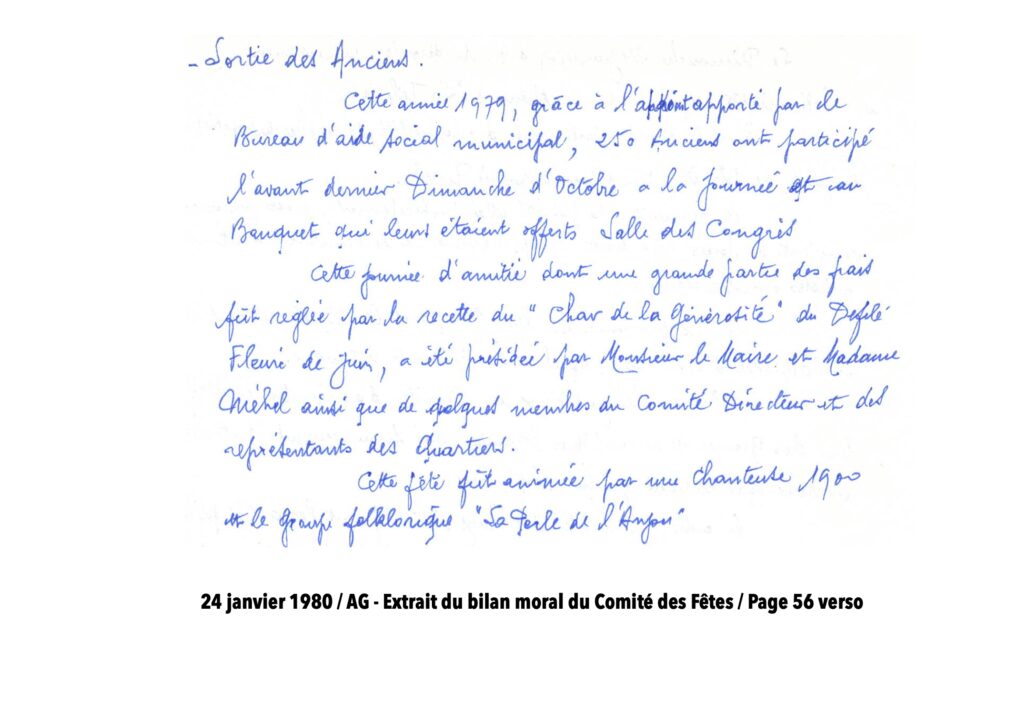 - Sortie des Anciens.
Cette année 1979, grâce à l'appoint apporté par le
Bureau d'aide social municipal, 250 Anciens ont participé
l'avant dernier Dimanche d'Octobre a la journée et au
Banquet qui leurs étaient offerts Salle des Congrès
Cette journée d'amitié dont une grande partie des frais
fût réglée par la recette du "Char de la Générosité" du Défilé
Fleuri de Juin, a été présidée par Monsieur le Maire et Madame
Méhel ainsi que de quelques membres du Comité Directeur et des
représentants des Quartiers.
Cette fête fût animée par une Chanteuse 1900
et le groupe folklorique "La Perle de l'Anjou"
24 janvier 1980 / AG - Extrait du bilan moral du Comité des Fêtes / Page 56 verso